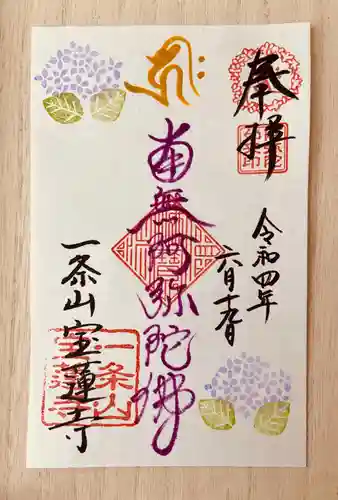 奉拝
令和四年
六月十九日
南無阿弥陀佛
一条山宝蓮寺
一条山